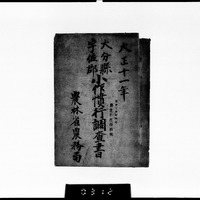 大正十一年
大分縣
宇佐郡
小作慣行調査書
農林省農務局
0312